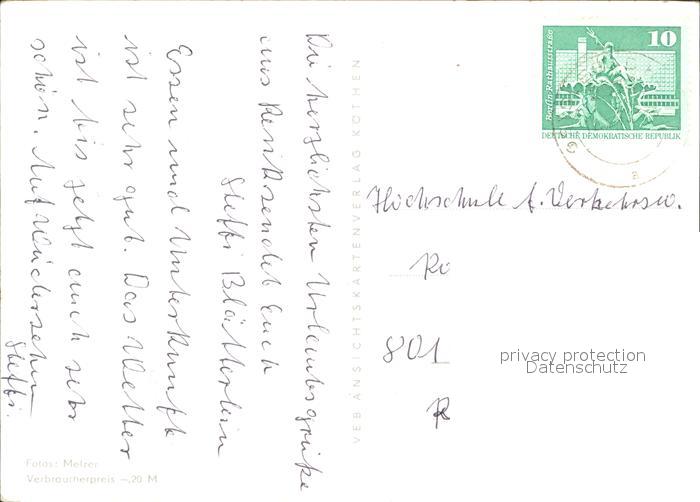 Die herzlichsten Urlaubsgrüße
aus Rerik sendet Euch
Steffi Blätterlein
Essen und Unterkunft
ist sehr gut. Das Wetter
ist bis jetzt auch sehr
schön. Auf Wiedersehen
Steffi.
VEB ANSICHTSKARTENVERLAG KÖTHEN
Fotos: Melzer
Verbraucherpreis –,20 M
10
Berlin-Rathausstraße
DEUTSCHE DEMOKRATISCHE REPUBLIK
Hochschule f. Verkehrsw.
801
privacy protection
Datenschutz